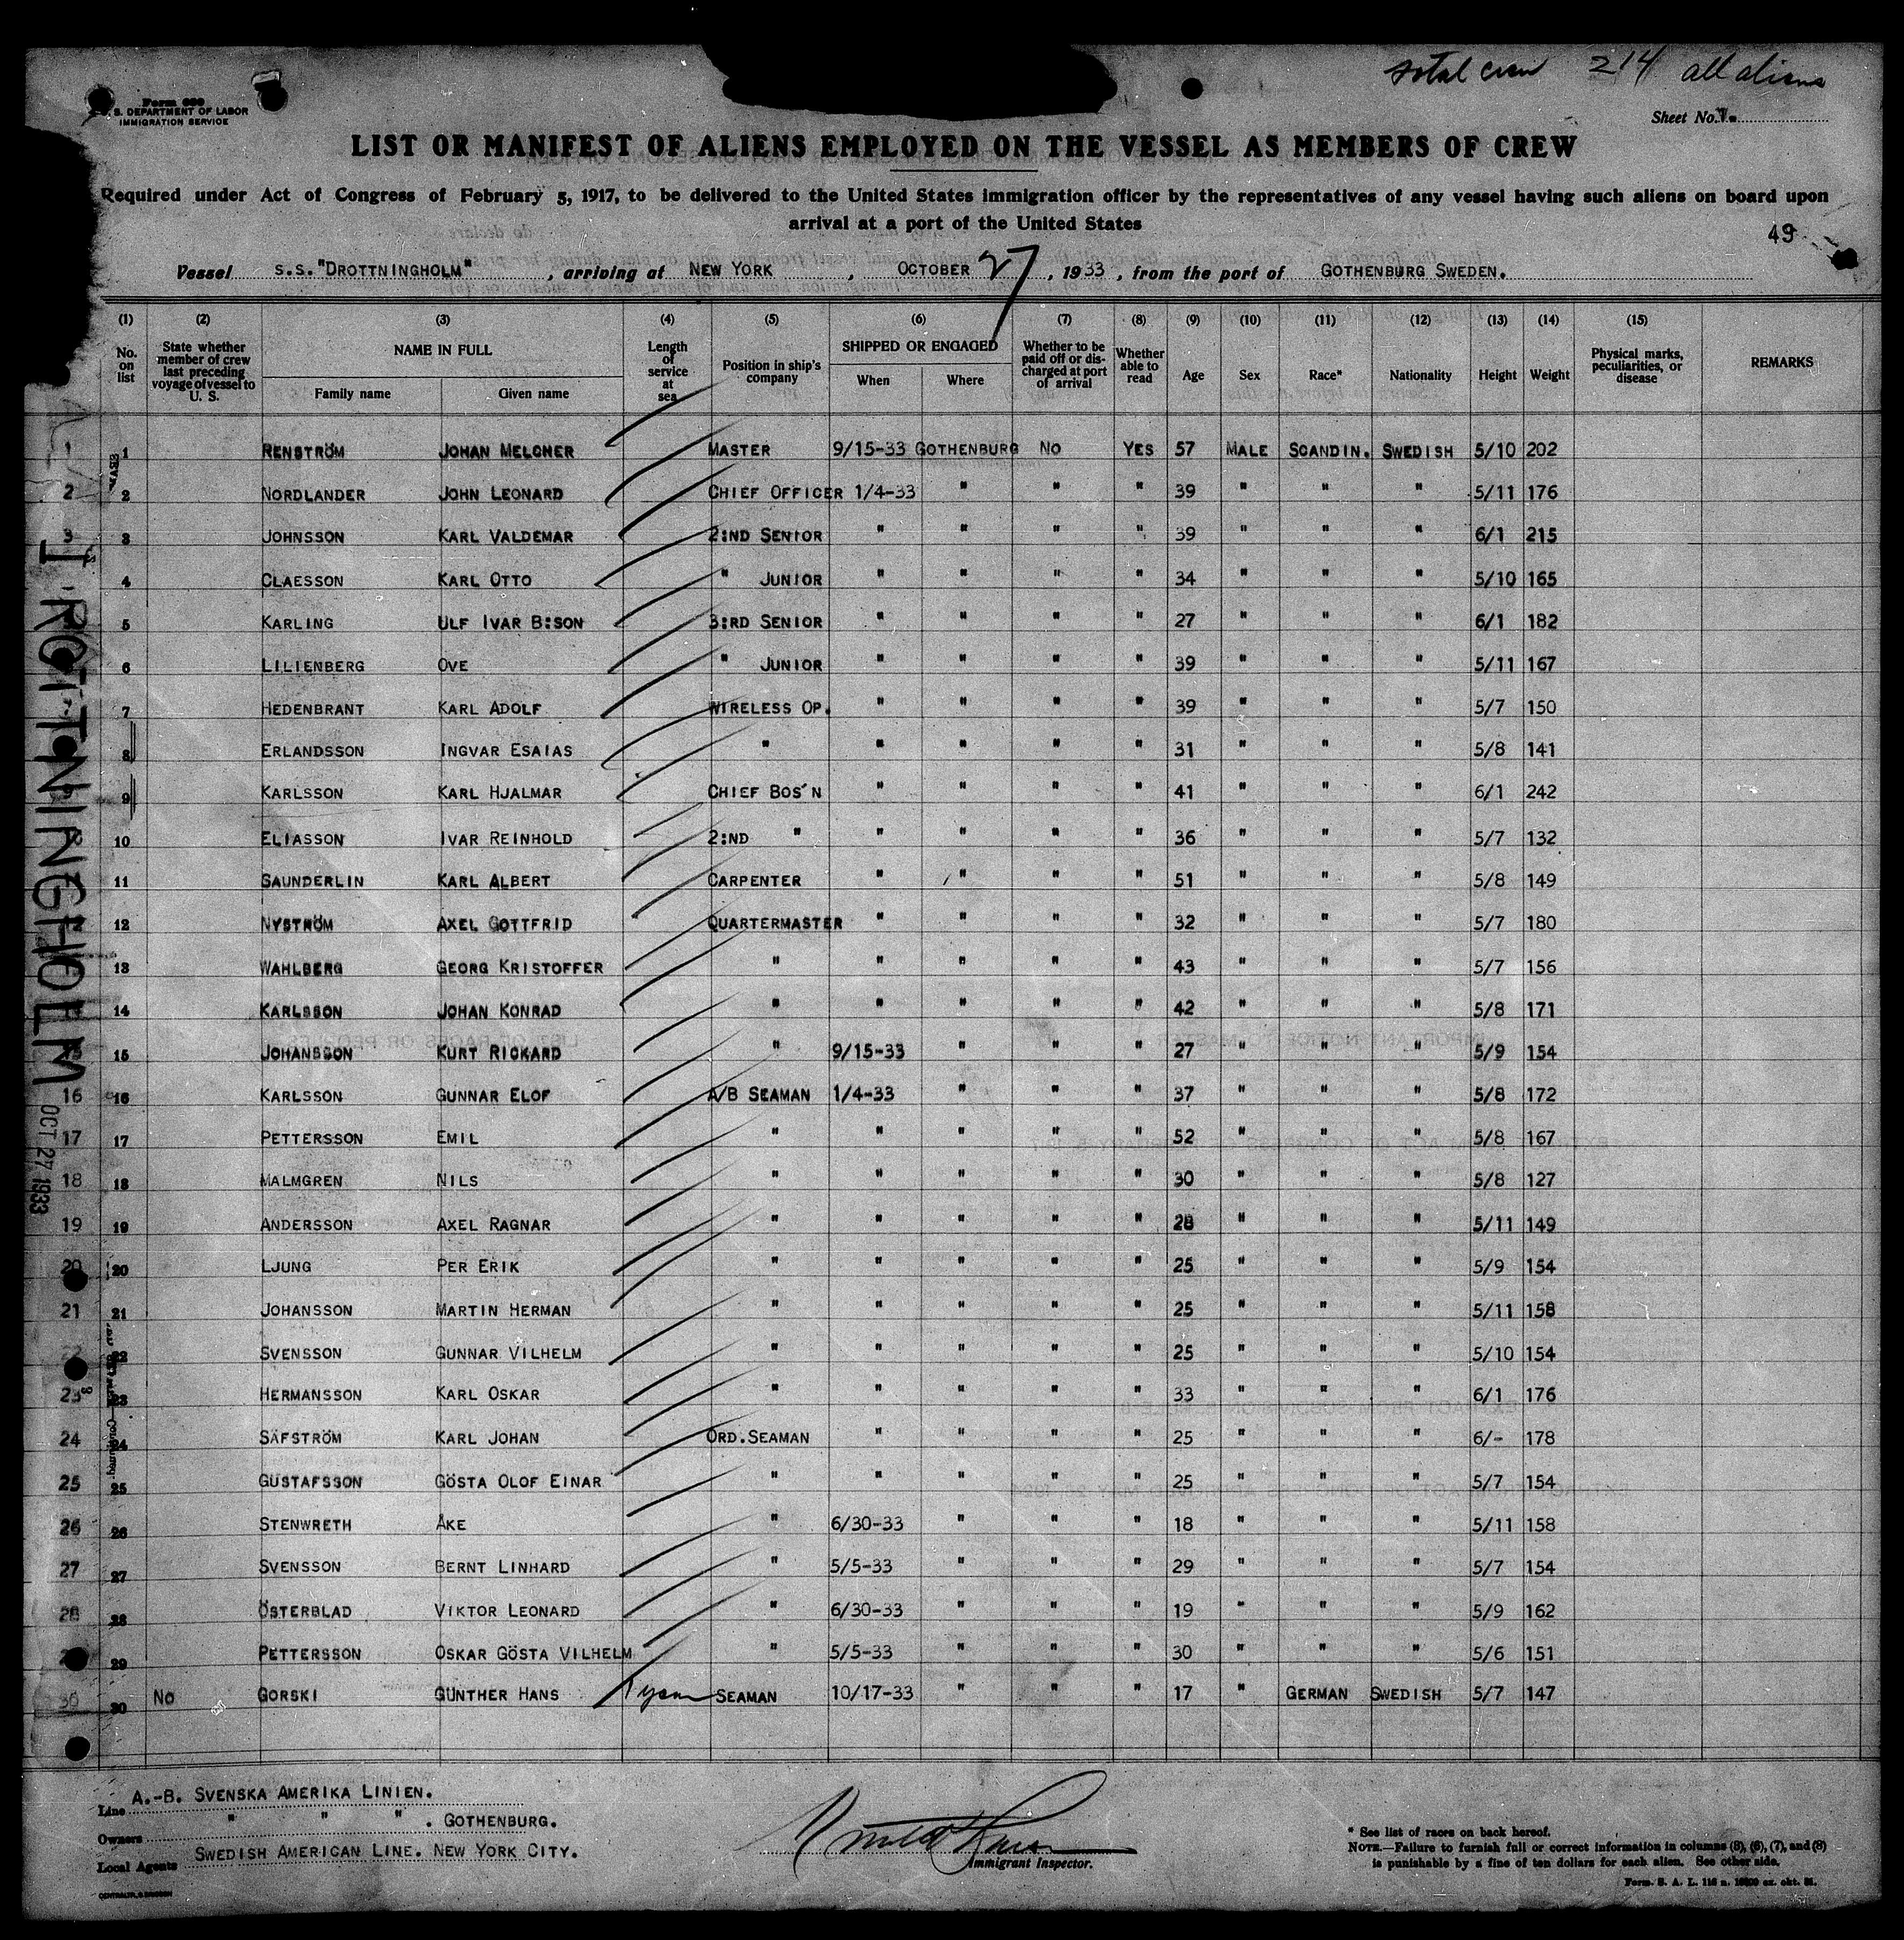 total crew 214 all aliens
U. S. DEPARTMENT OF LABOR
IMMIGRATION SERVICE
Sheet No. 1.
LIST OR MANIFEST OF ALIENS EMPLOYED ON THE VESSEL AS MEMBERS OF CREW
Required under Act of Congress of February 5, 1917, to be delivered to the United States immigration officer by the representatives of any vessel having such aliens on board upon
arrival at a port of the United States
49
Vessel S.S."DROTTNINGHOLM", arriving at NEW YORK, OCTOBER 27, 1933, from the port of GOTHENBURG SWEDEN.
(1) (2) (3) (4) (5) (6) (7) (8) (9) (10) (11) (12) (13) (14) (15)
No. on list State whether member of crew last preceding voyage of vessel to U. S. NAME IN FULL Family name Given name Length of service at sea Position in ship's company SHIPPED OR ENGAGED When Where Whether to be paid off or discharged at port of arrival Whether able to read Age Sex Race* Nationality Height Weight Physical marks, peculiarities, or disease REMARKS
1 1 RENSTRÖM JOHAN MELCHER MASTER 9/15-33 GOTHENBURG NO YES 57 MALE SCANDIN. SWEDISH 5/10 202
2 2 NORDLANDER JOHN LEONARD CHIEF OFFICER 1/4-33 " " " 39 " " " 5/11 176
3 3 JOHNSSON KARL VALDEMAR 2:ND SENIOR " " " " 39 " " " 6/1 215
4 CLAESSON KARL OTTO " JUNIOR " " " " 34 " " " 5/10 165
5 KARLING ULF IVAR B:SON 3:RD SENIOR " " " " 27 " " " 6/1 182
6 LILIENBERG OVE " JUNIOR " " " " 39 " " " 5/11 167
7 HEDENBRANT KARL ADOLF WIRELESS OP. " " " " 39 " " " 5/7 150
8 ERLANDSSON INGVAR ESAIAS " " " " " 31 " " " 5/8 141
9 KARLSSON KARL HJALMAR CHIEF BOS'N " " " " 41 " " " 6/1 242
10 ELIASSON IVAR REINHOLD 2:ND " " " " " 36 " " " 5/7 132
11 SAUNDERLIN KARL ALBERT CARPENTER " " " " 51 " " " 5/8 149
12 NYSTRÖM AXEL GOTTFRID QUARTERMASTER " " " " 32 " " " 5/7 180
13 WAHLBERG GEORG KRISTOFFER " " " " " 43 " " " 5/7 156
14 KARLSSON JOHAN KONRAD " " " " " 42 " " " 5/8 171
15 15 JOHANSSON KURT RICKARD " 9/15-33 " " " 27 " " " 5/9 154
16 16 KARLSSON GUNNAR ELOF A/B SEAMAN 1/4-33 " " " 37 " " " 5/8 172
17 17 PETTERSSON EMIL " " " " " 52 " " " 5/8 167
18 18 MALMGREN NILS " " " " " 30 " " " 5/8 127
19 19 ANDERSSON AXEL RAGNAR " " " " " 28 " " " 5/11 149
20 20 LJUNG PER ERIK " " " " " 25 " " " 5/9 154
21 21 JOHANSSON MARTIN HERMAN " " " " " 25 " " " 5/11 158
22 22 SVENSSON GUNNAR VILHELM " " " " " 25 " " " 5/10 154
23 23 HERMANSSON KARL OSKAR " " " " " 33 " " " 6/1 176
24 24 SÄFSTRÖM KARL JOHAN ORD.SEAMAN " " " " 25 " " " 6/- 178
25 25 GUSTAFSSON GÖSTA OLOF EINAR " " " " " 25 " " " 5/7 154
26 26 STENWRETH ÅKE " 6/30-33 " " " 18 " " " 5/11 158
27 27 SVENSSON BERNT LINHARD " 5/5-33 " " " 29 " " " 5/7 154
28 28 ÖSTERBLAD VIKTOR LEONARD " 6/30-33 " " " 19 " " " 5/9 162
29 PETTERSSON OSKAR GÖSTA VILHELM " 5/5-33 " " " 30 " " " 5/6 151
30 30 NO GORSKI GÜNTHER HANS SEAMAN 10/17-33 " " " 17 " GERMAN SWEDISH 5/7 147
DROTTNINGHOLM
OCT 27 1933
Line A.-B. SVENSKA AMERIKA LINIEN.
Owners " " " . GOTHENBURG.
Local Agents SWEDISH AMERICAN LINE. NEW YORK CITY.
Immigrant Inspector.
* See list of races on back hereof.
NOTE.—Failure to furnish full or correct information in columns (5), (6), (7), and (8)
is punishable by a fine of ten dollars for each alien. See other side.